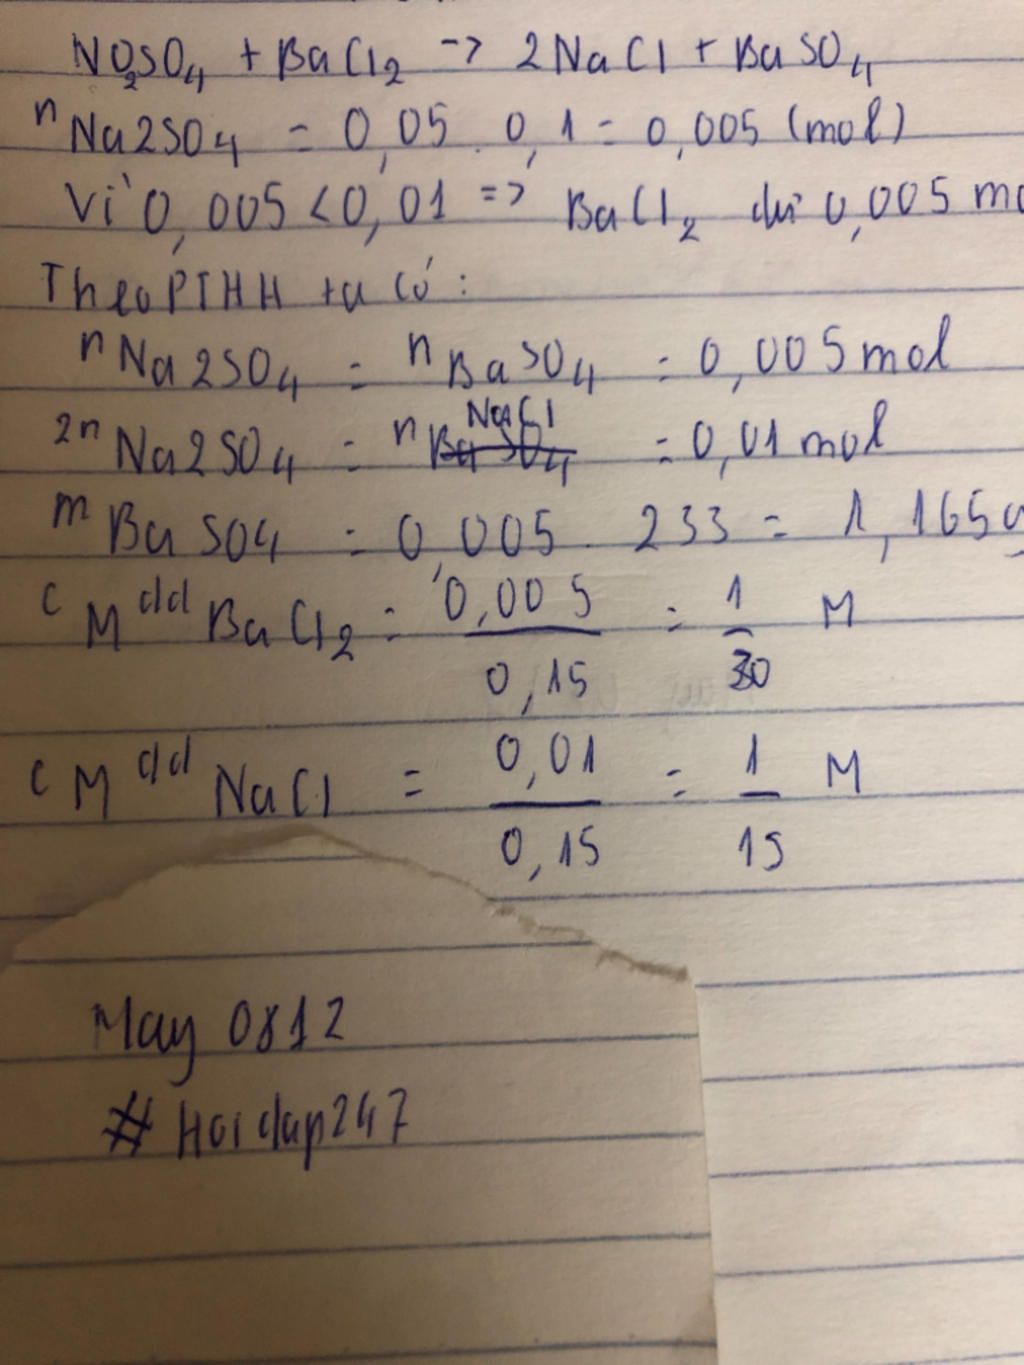 Na2SO4 + BaCl2 -> 2NaCl + BaSO4
nNa2SO4 = 0,05 . 0,1 = 0,005 (mol)
Vì 0,005 < 0,01 => BaCl2 dư 0,005 mo
Theo PTHH ta có:
nNa2SO4 = nBaSO4 = 0,005 mol
2nNa2SO4 = nNaCl = 0,01 mol
mBaSO4 = 0,005 . 233 = 1,165g
CM dd BaCl2 = 0,005 / 0,15 = 1 / 30 M
CM dd NaCl = 0,01 / 0,15 = 1 / 15 M
May 0812
# Hoidap247